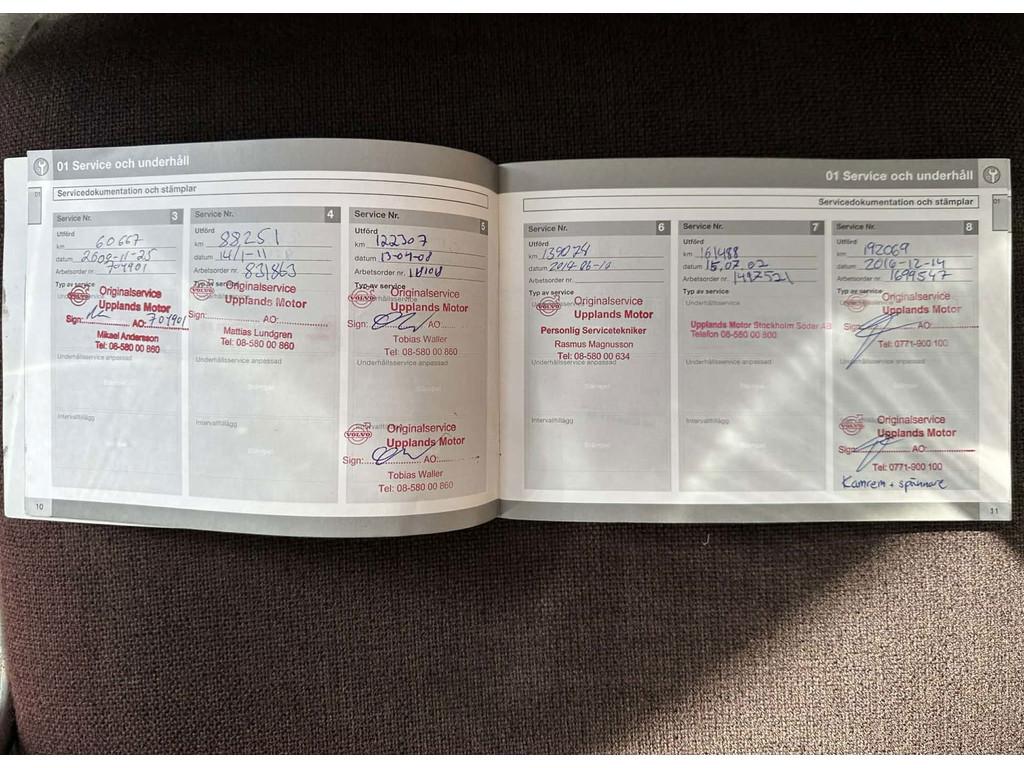 01 Service och underhåll
Servicedokumentation och stämplar
01
Service Nr. 3
Utförd
km 60667
datum
Arbetsorder nr. 704901
Typ av service
VOLVO Originalservice
Upplands Motor
Sign: AO: 704901
Mikael Andersson
Tel: 08-580 00 860
Underhållsservice anpassad
Stämpel
Intervalltillägg
10
Service Nr. 4
Utförd
km 88251
datum 14/1-11
Arbetsorder nr. 831863
Typ av service
VOLVO Originalservice
Upplands Motor
Sign: AO:
Mattias Lundgren
Tel: 08-580 00 860
Underhållsservice anpassad
Stämpel
Intervalltillägg
Service Nr. 5
Utförd
km 122307
datum
Arbetsorder nr.
Typ av service
VOLVO Originalservice
Upplands Motor
Sign: AO:
Tobias Waller
Tel: 08-580 00 860
Underhållsservice anpassad
VOLVO Originalservice
Upplands Motor
Sign: AO:
Tobias Waller
Tel: 08-580 00 860
01 Service och underhåll
Servicedokumentation och stämplar
01
Service Nr. 6
Utförd
km 139074
datum 2014-06-10
Arbetsorder nr.
Typ av service
VOLVO Originalservice
Upplands Motor
Personlig Servicetekniker
Rasmus Magnusson
Tel: 08-580 00 634
Underhållsservice anpassad
Stämpel
Intervalltillägg
Service Nr. 7
Utförd
km 161488
datum 15.07.02
Arbetsorder nr. 1492521
Typ av service
Underhållsservice
Upplands Motor Stockholm Söder AB
Telefon 08-580 00 800
Underhållsservice anpassad
Stämpel
Intervalltillägg
Service Nr. 8
Utförd
km 192069
datum 2016-12-14
Arbetsorder nr. 1699547
Typ av service
VOLVO Originalservice
Upplands Motor
Sign: AO:
Tel: 0771-900 100
Underhållsservice anpassad
VOLVO Originalservice
Upplands Motor
Sign: AO:
Tel: 0771-900 100
Kamrem + spännare
11